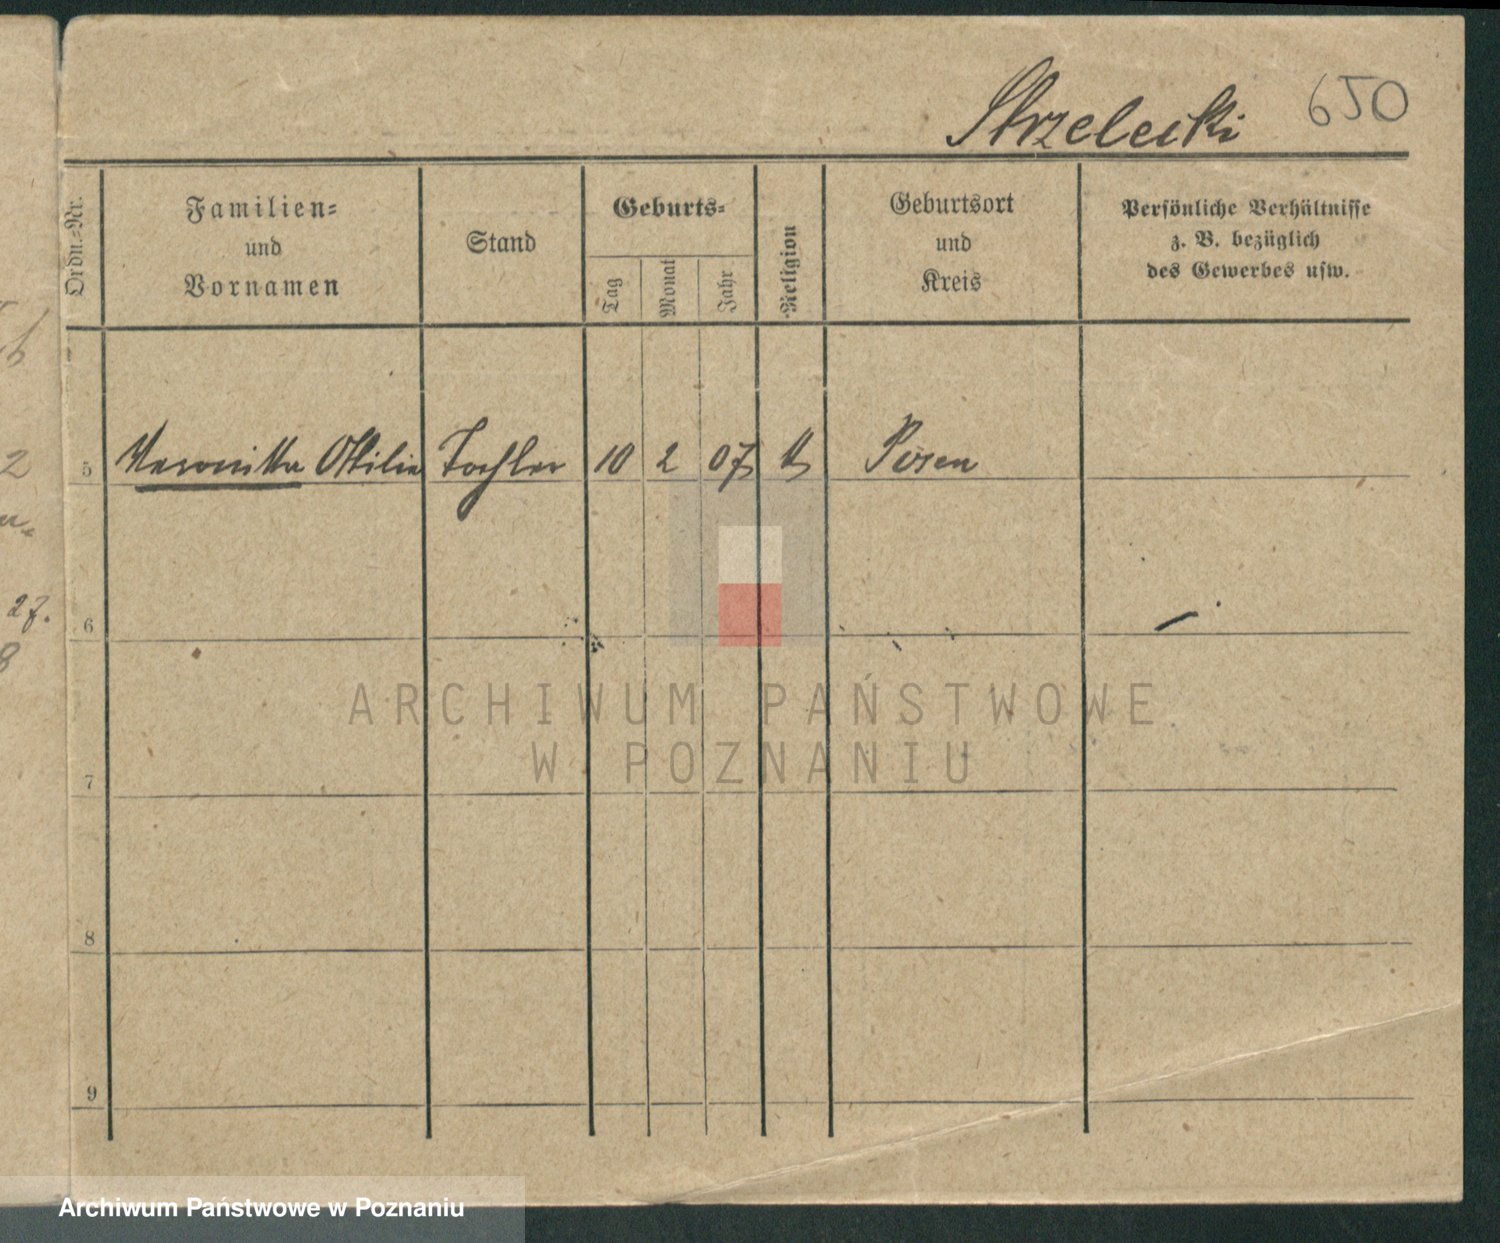 Strzelecki 650
Ordn.-Nr.
Familien-
und
Vornamen
Stand
Geburts-
Tag
Monat
Jahr
Religion
Geburtsort
und
Kreis
Persönliche Verhältnisse
z. B. bezüglich
des Gewerbes usw.
5 Veronika Ottilie Tochter 10 2 07 k Posen
2
27.
6
8
ARCHIWUM PAŃSTWOWE
W POZNANIU
7
8
9
Archiwum Państwowe w Poznaniu